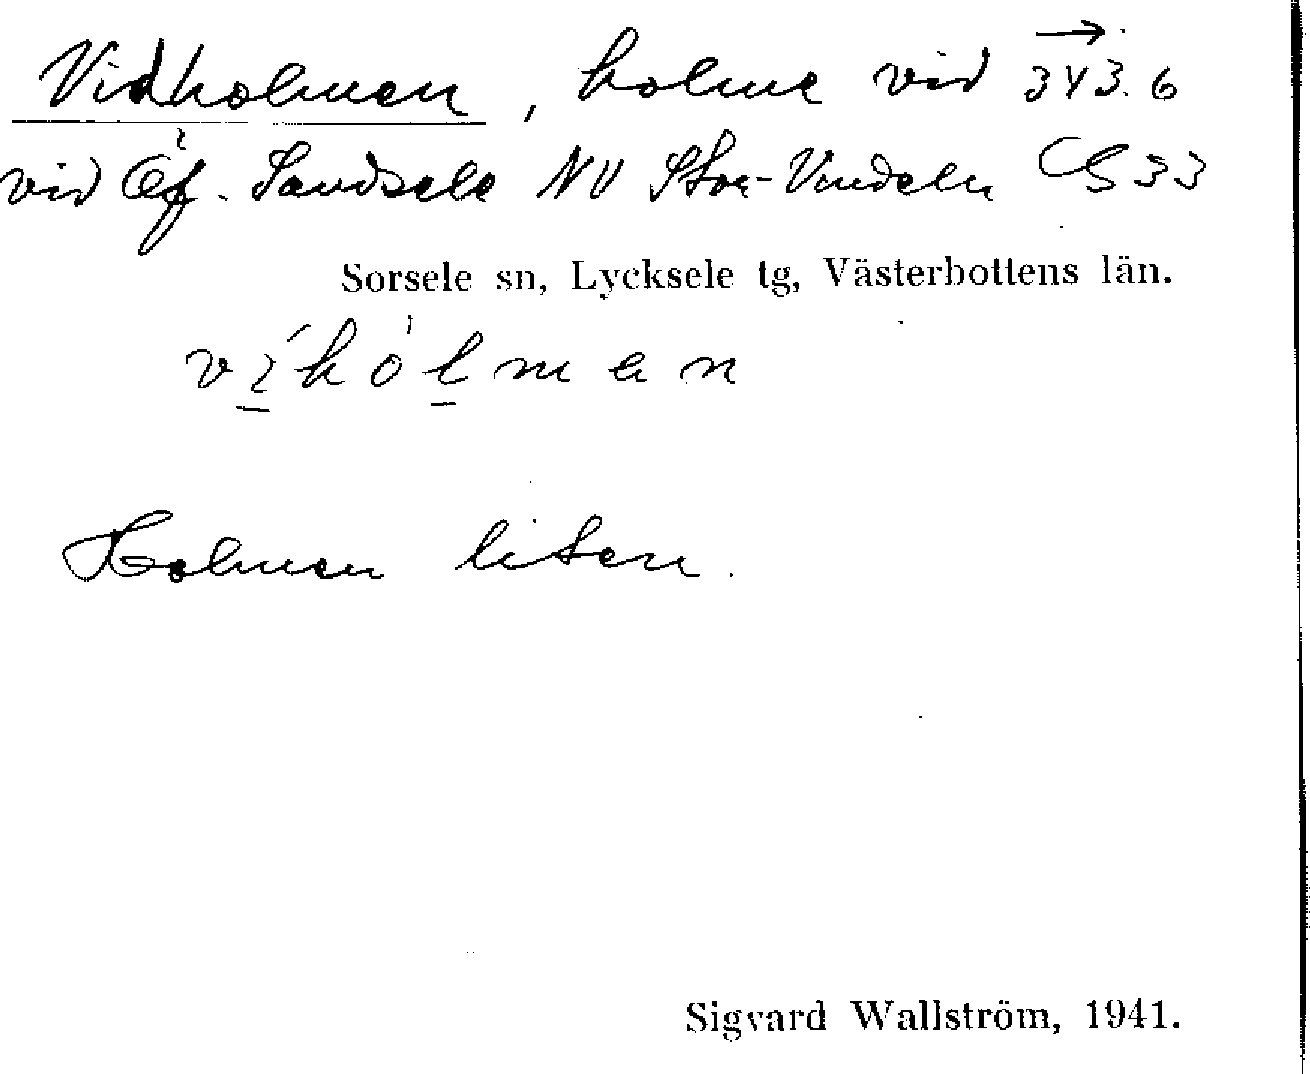 Vidholmen, holme vid 343.6
vid Öf. Sandsele NV Stor-Vindeln G33
Sorsele sn, Lycksele tg, Västerbottens län.
víhólman
Holmen liten.
Sigvard Wallström, 1941.